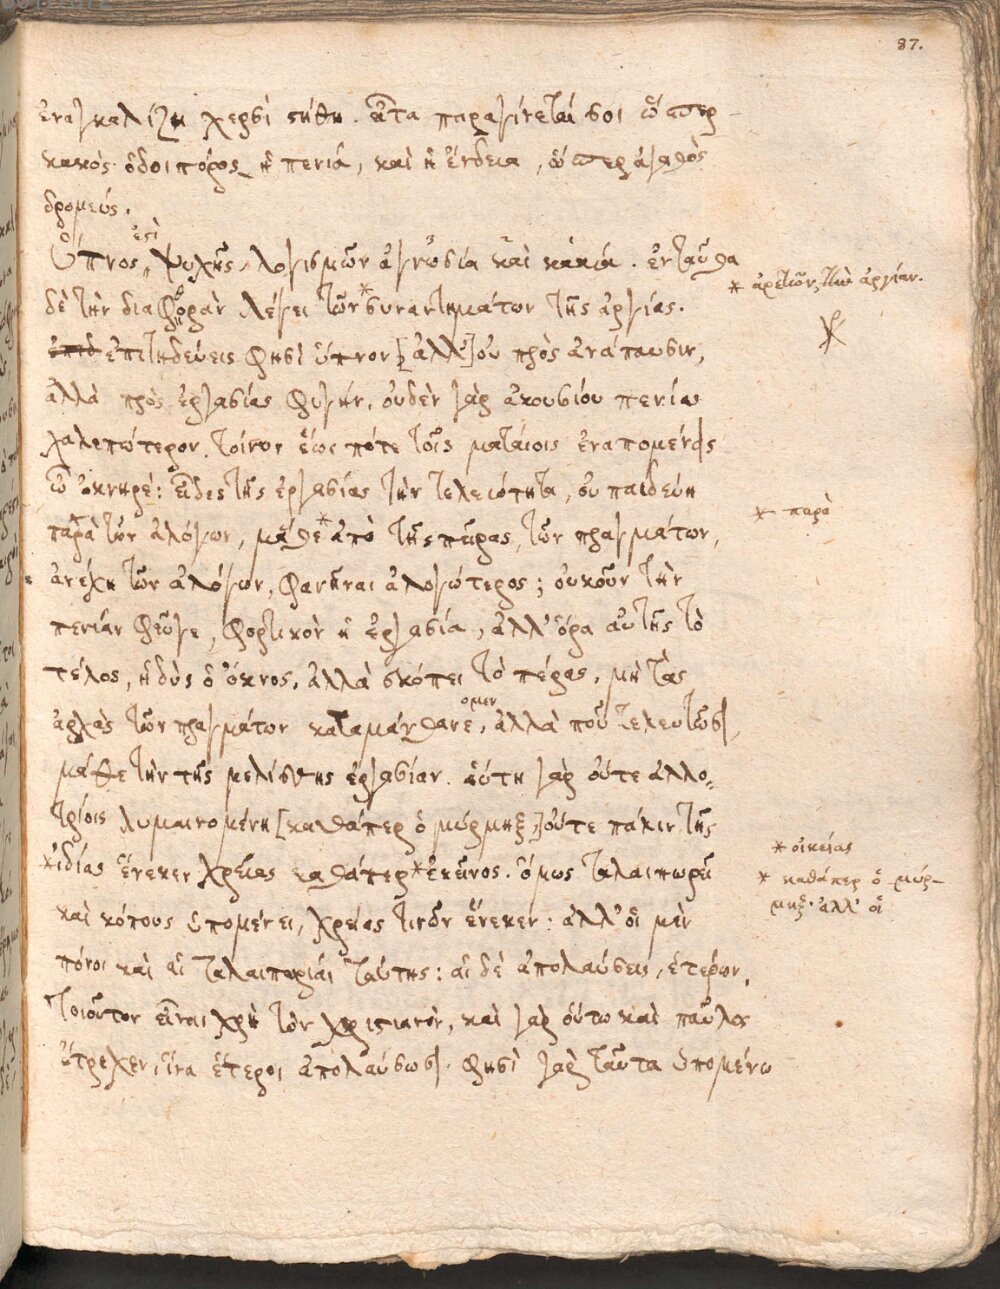 87.
ἐναγκαλίζῃ χερσὶ στήθη. εἶτα παραγίνεταί σοι ὥσπερ
κακὸς ὁδοιπόρος ἡ πενία, καὶ ἡ ἔνδεια, ὥσπερ ἀγαθὸς
δρομεύς.
Ὕπνος ἐστὶ ψυχῆς, λογισμῶν ἀγνωσία καὶ κακία. ἐνταῦθα
* ἀρετῶν, τὴν ἀργίαν.
δὲ τὴν διαφορὰν λέγει τῶν * συναρτημάτων τῆς ἀργίας.
ἐπιτηδεύεις φησὶ ὕπνον [ἀλλ'] οὐ πρὸς ἀνάπαυσιν,
ἀλλὰ πρὸς ἐργασίας φυγήν, οὐδὲν γὰρ ἀκουσίου πενίας
χαλεπώτερον. τοίνυν ἕως πότε τοῖς ματαίοις ἐναπομένεις
ὦ ὀκνηρέ: εἶδες τῆς ἐργασίας τὴν τελειότητα, οὐ παιδεύῃ
παρὰ τῶν ἀλόγων, μάθε * ἀπὸ τῆς πείρας, τῶν πραγμάτων,
* παρὰ
ἀνέχῃ τῶν ἀλόγων, φανῆναι ἀλογώτερος; οὐκοῦν τὴν
πενίαν φεῦγε, φορτικὸν ἡ ἐργασία, ἀλλ' ὅρα αὐτῆς τὸ
τέλος, ἡδὺς ὁ ὄκνος, ἀλλὰ σκόπει τὸ πέρας, μὴ τὰς
ἀρχὰς τῶν πραγμάτων καταμάνθανε, ομεν ἀλλὰ ποῦ τελευτῶσι,
μάθε τὴν τῆς μελίσσης ἐργασίαν. αὕτη γὰρ οὔτε ἀλλο-
τρίοις λυμαινομένη [καθάπερ ὁ μύρμηξ,] οὔτε πάλιν τῆς
* ἰδίας ἕνεκεν χρείας καθάπερ * ἐκεῖνος. ὅμως ταλαιπωρεῖ
* οἰκείας
* καθάπερ ὁ μύρ-
μηξ. ἀλλ' οἱ
καὶ κόπους ὑπομένει, χρείας τινῶν ἕνεκεν: ἀλλ' οἱ μὲν
πόνοι καὶ αἱ ταλαιπορίαι ταύτης: αἱ δὲ ἀπολαύσεις, ἑτέρων,
τοιοῦτον εἶναι χρὴ τὸν χριστιανόν, καὶ γὰρ οὕτω καὶ παῦλος
ἔτρεχεν, ἵνα ἕτεροι ἀπολαύσωσι. φησὶ γὰρ ταῦτα ὑπομένω